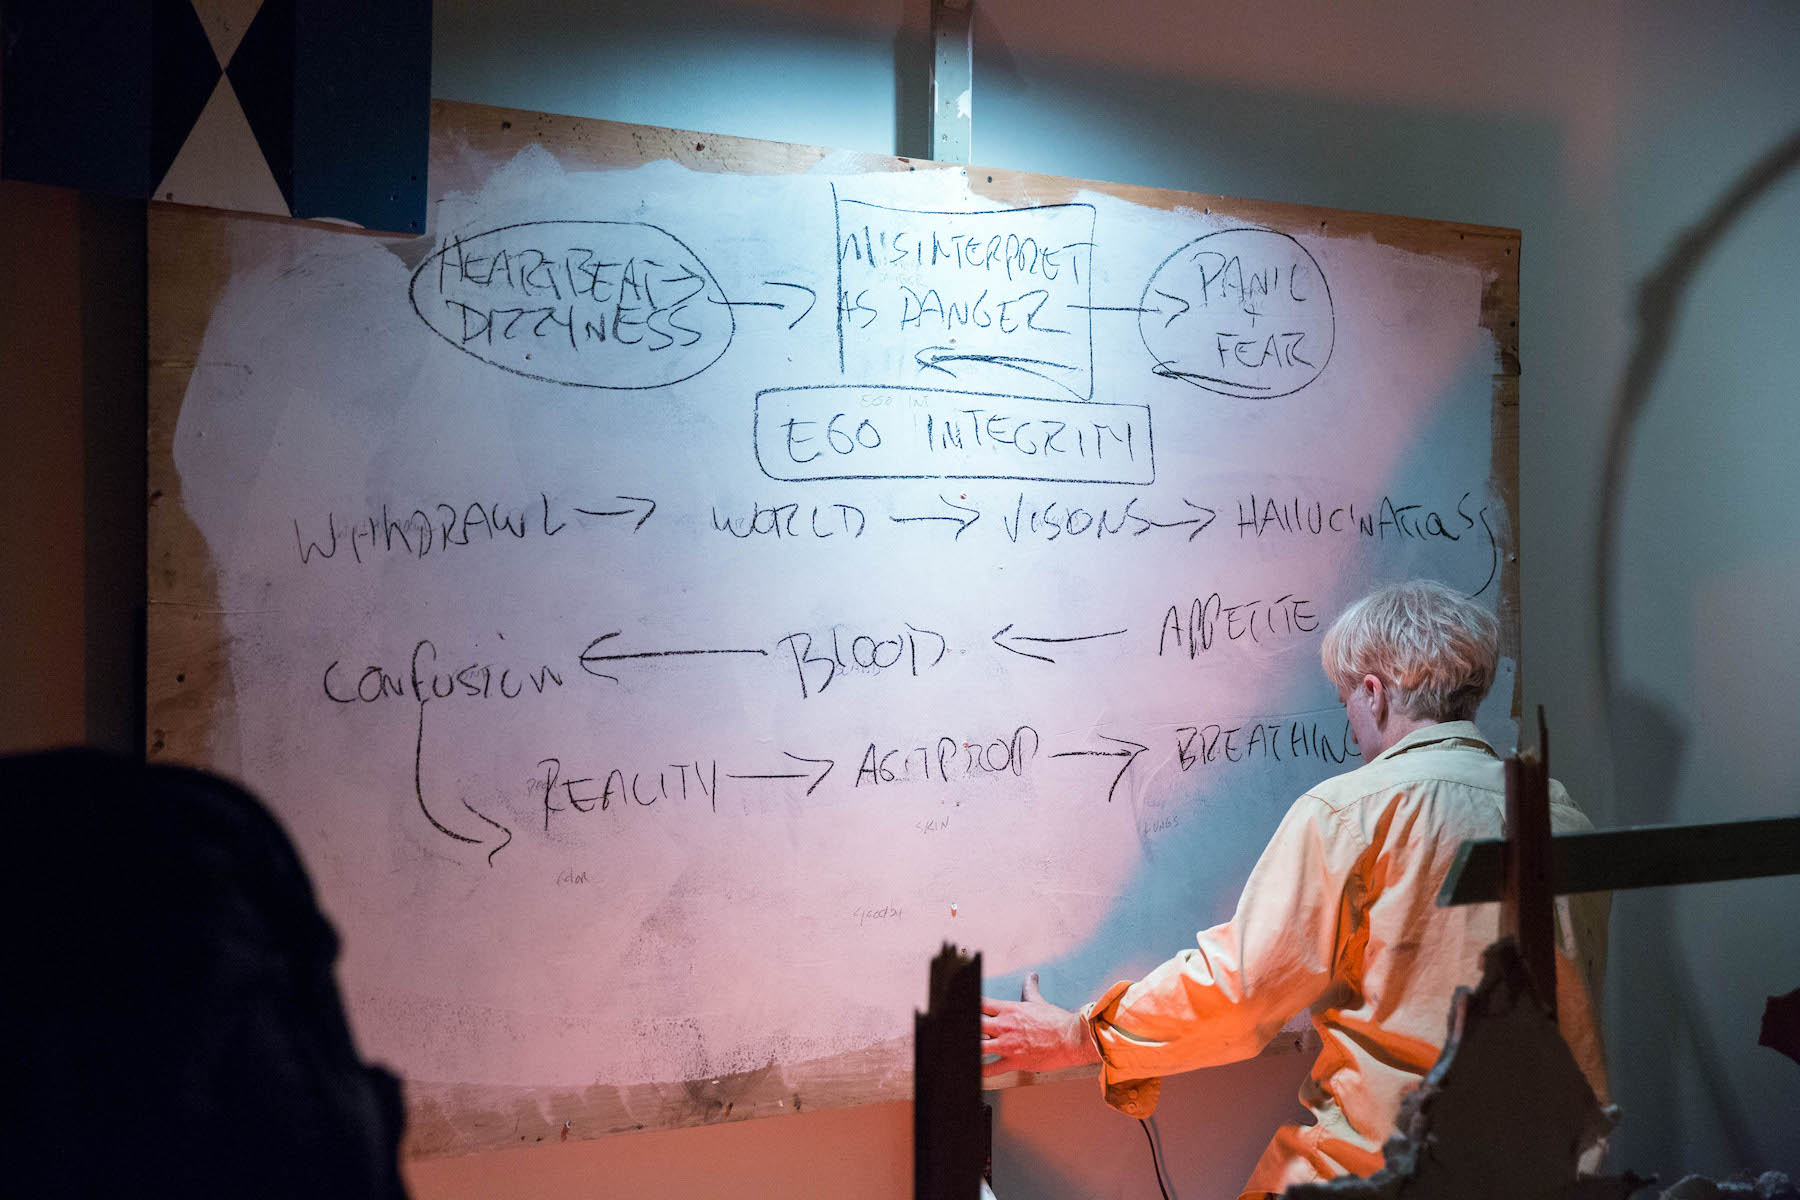 HEARTBEAT →
DIZZYNESS
→
MISINTERPRET
AS DANGER
→
PANIC
+
FEAR
EGO INT
EGO INTEGRITY
WITHDRAWL → WORLD → VISIONS → HALLUCINATIONS
CONFUSION ← BLOOD ← APPETITE
REALITY → AGITPROP → BREATHING
SKIN
LUNGS